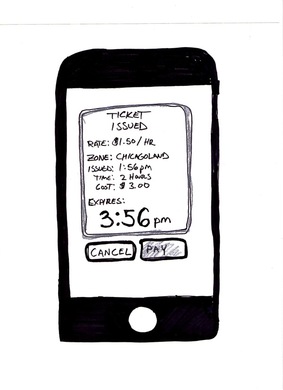 TICKET
ISSUED
RATE: $1.50/HR
ZONE: CHICAGOLAND
ISSUED: 1:56pm
TIME: 2 HOURS
COST: $3.00
EXPIRES:
3:56pm
CANCEL PAY